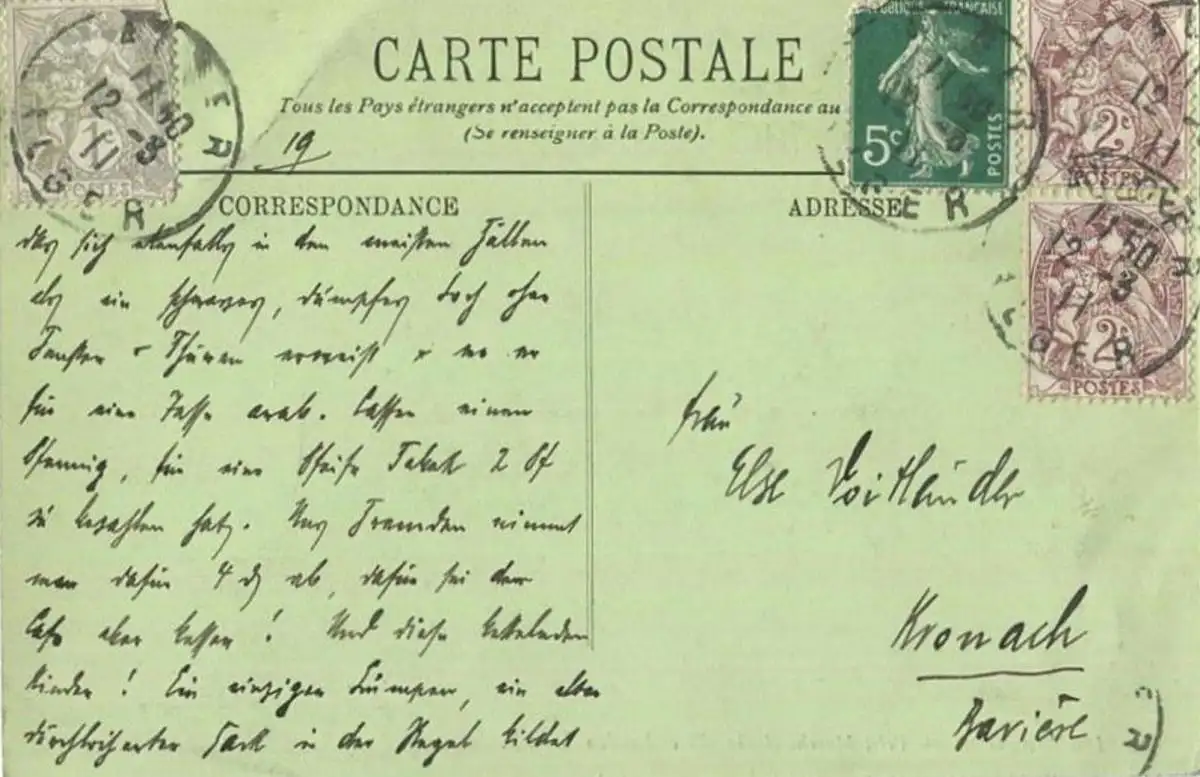 CARTE POSTALE
Tous les Pays étrangers n'acceptent pas la Correspondance au
(Se renseigner à la Poste).
19
RÉPUBLIQUE FRANÇAISE
5c
POSTES
2c
POSTES
2c
POSTES
POSTES
ALGER
11 50
12 -3
11
CORRESPONDANCE
ADRESSE
das sich ebenfalls in den meisten Fällen
als ein schwarzes, dumpfes Loch ohne
Fenster Thüren erweist wo er
für eine Tasse arab. Caffee einen
Pfennig, für eine Pfeife Tabak 2 Pf
zu bezahlen hat. Uns Fremden nimmt
man dafür 4 ab, dafür sei der
Cafe aber besser! Und diese bettelnden
Kinder! Ein einziger Lumpen, ein alter
durchlöcherter Sack in der Regel bildet
Frau
Else Voitländer
Kronach
Bavière